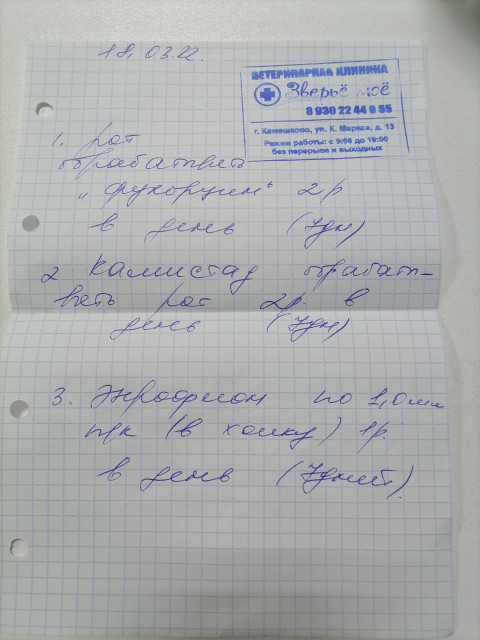 18.03.22.
ВЕТЕРИНАРНАЯ КЛИНИКА
Зверьё моё
8 930 22 44 0 55
г. Камешково, ул. К. Маркса, д. 13
Режим работы: с 9:00 до 19:00
без перерывов и выходных
1. рот
обрабатывать
"фукорцин" 2р
в день (7дн)
2 Камистад обрабаты-
вать рот 2р. в
день (7дн)
3. Энрофлон по 1,0мл
п/к (в холку) 1р.
в день (7дней).